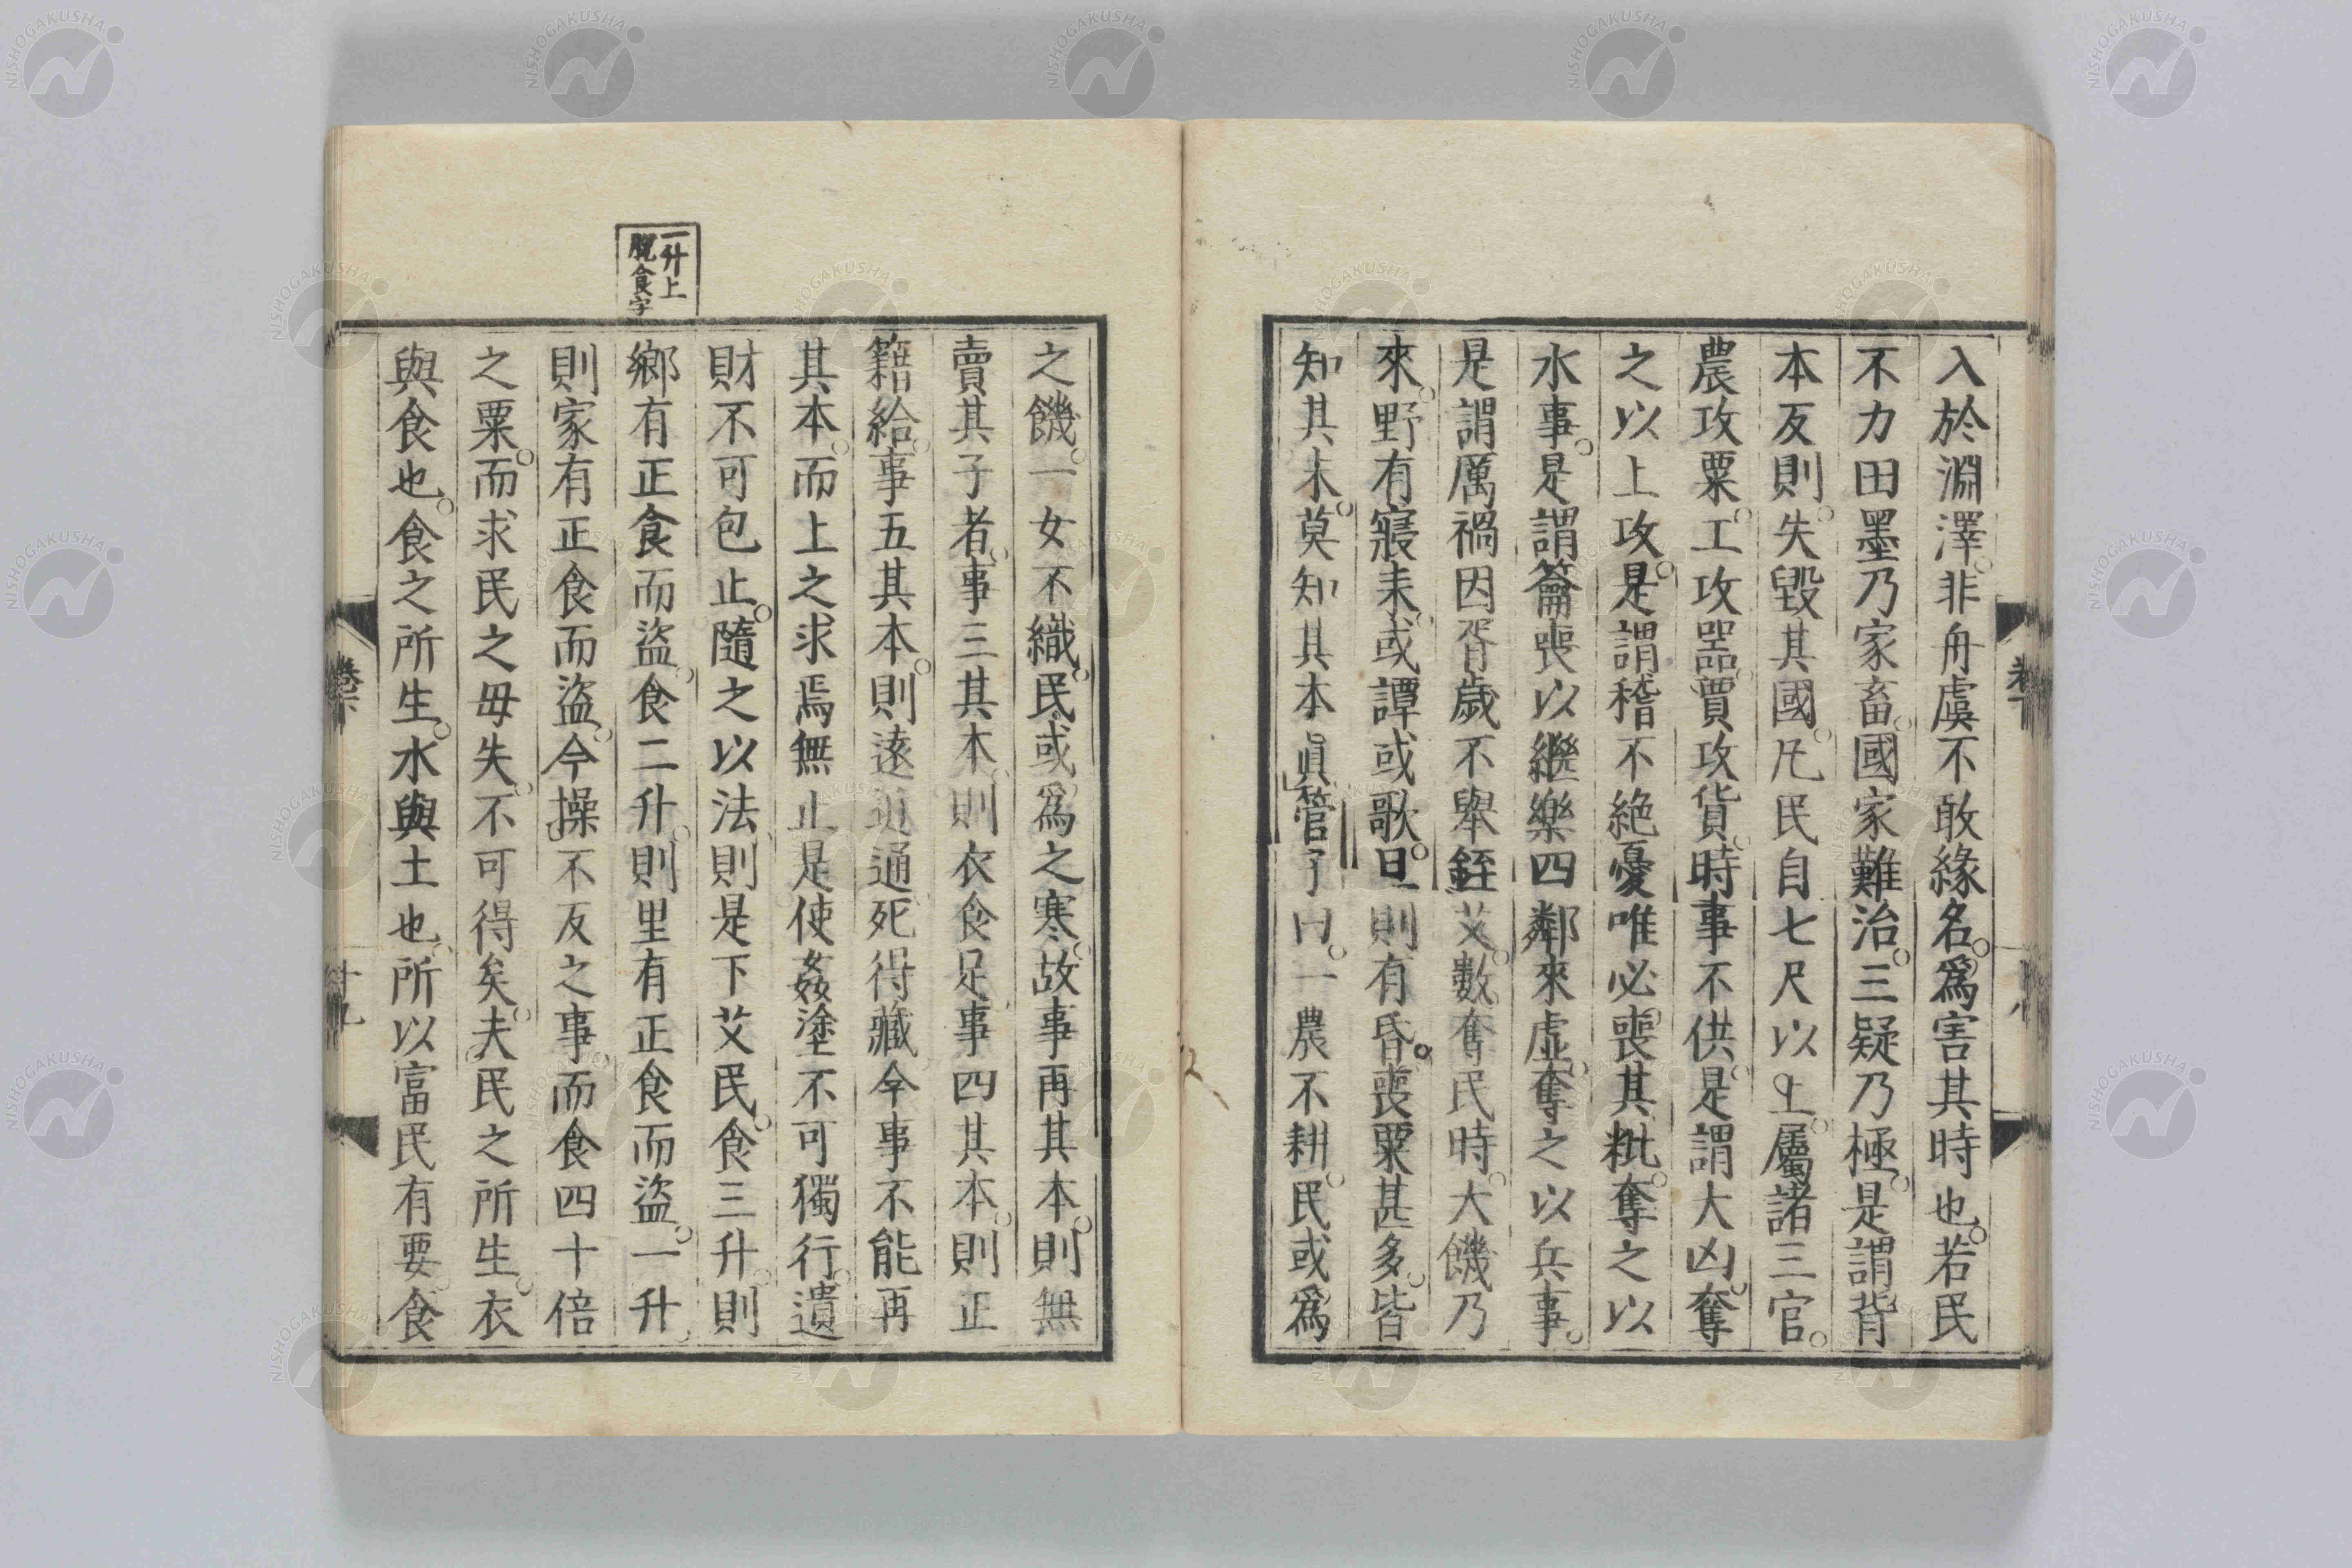 入於淵澤。非舟虞不敢緣名。爲害其時也。若民
不力田墨乃家畜。國家難治。三疑乃極。是謂背
本反則。失毀其國。凡民自七尺以上。屬諸三官。
農攻粟。工攻器。賈攻貨。時事不供。是謂大凶。奪
之以土攻。是謂稽不絶憂唯必喪其粃。奪之以
水事。是謂籥喪以繼樂四鄰來虛。奪之以兵事。
是謂厲禍因胥歲不舉銍艾。數奪民時。大饑乃
來。野有寢耒。或譚或歌。旦則有昏。喪粟甚多。皆
知其末。莫知其本眞管子曰。一農不耕。民或爲
一升上
脫食字
之饑。一女不織。民或爲之寒。故事再其本。則無
賣其子者。事三其本。則衣食足。事四其本。則正
籍給。事五其本。則遠近通。死得藏。今事不能再
其本。而上之求焉無止。是使姦塗不可獨行。遺
財不可包止。隨之以法。則是下艾民。食三升。則
鄉有正食而盜。食二升。則里有正食而盜。一升。
則家有正食而盜。今操不反之事。而食四十倍
之粟。而求民之毋失。不可得矣。夫民之所生。衣
與食也。食之所生。水與土也。所以富民有要。食
卷下
十九
NISHOGAKUSHA